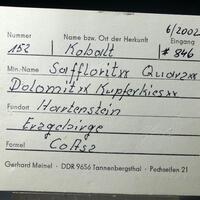 6/2002
Nummer Name bzw. Ort der Herkunft Eingang
152 Kobalt # 846
Min.-Name Saffloritxx Quarzxx
Dolomitxx Kupferkiesxx
Fundort Hartenstein
Erzgebirge
Formel CoAs2
Gerhard Meinel · DDR 9656 Tannenbergsthal · Pechseifen 21